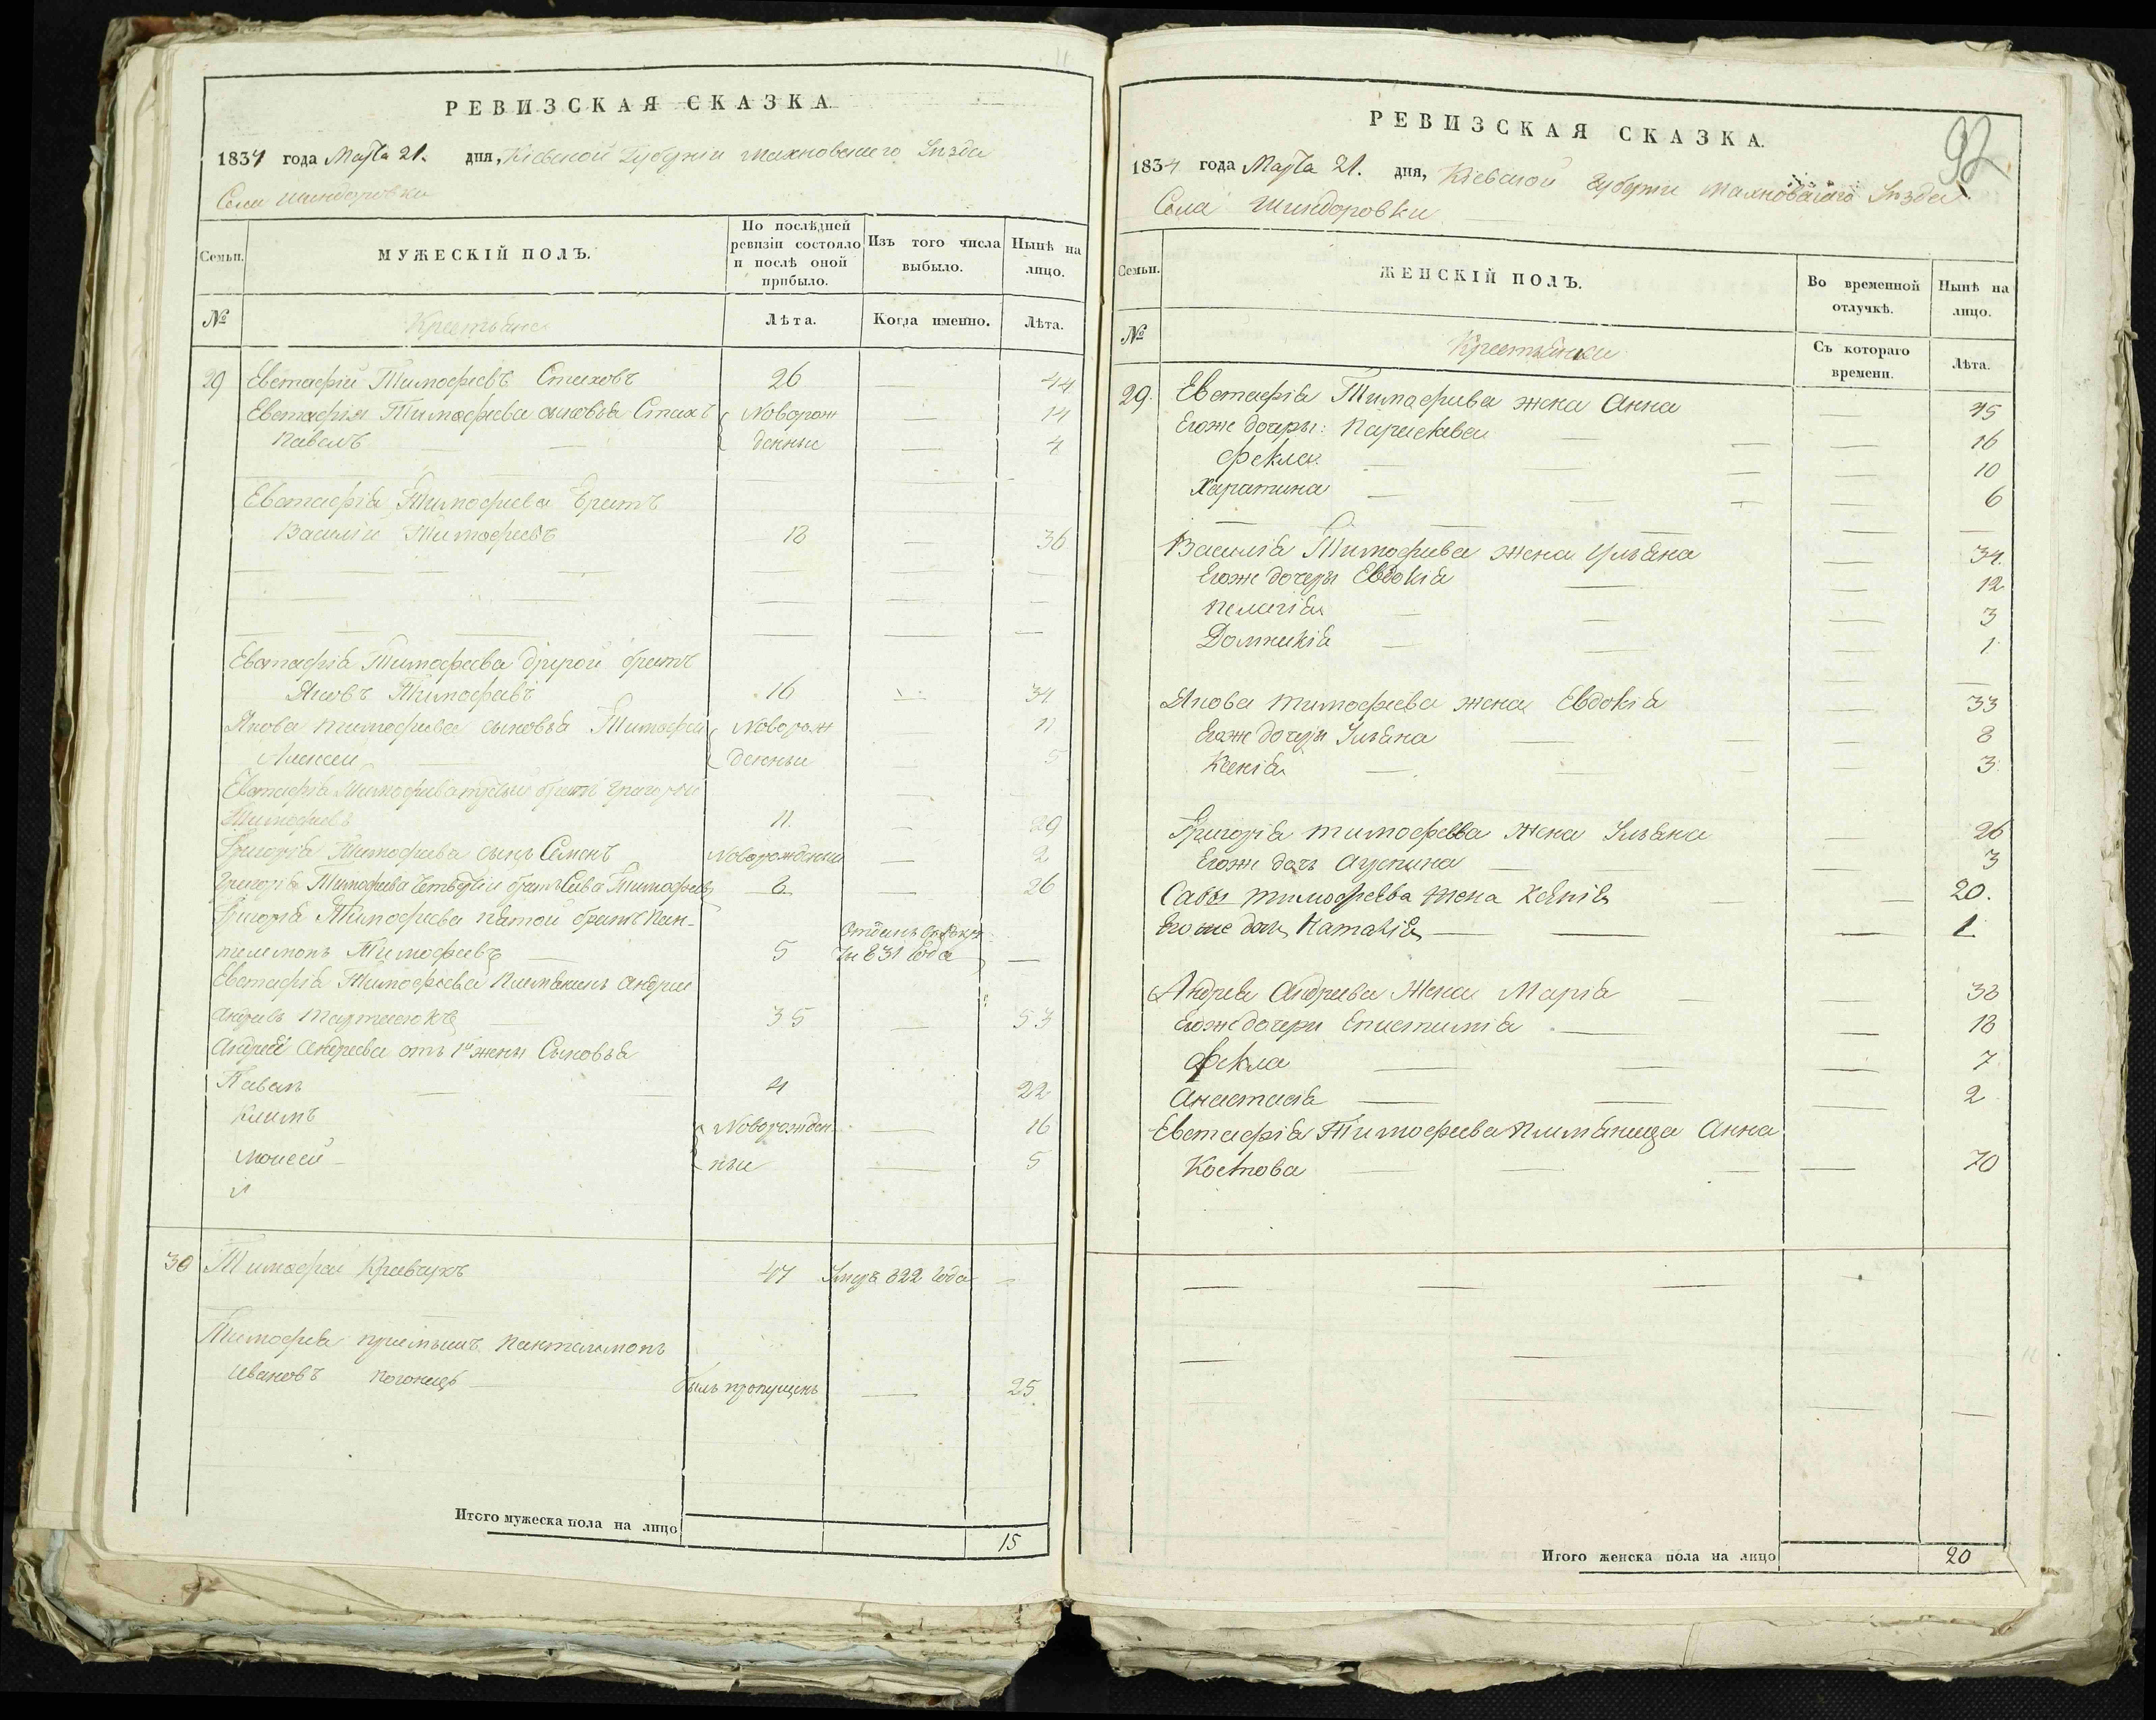 РЕВИЗСКАЯ СКАЗКА
1834 года Марта 21. дня, Кіевской Губерніи Махновскаго Уѣзда
Села Шиндоровки
Семьи.
МУЖЕСКІЙ ПОЛЪ.
По послѣдней ревизіи состояло и послѣ оной прибыло.
Изъ того числа выбыло.
Нынѣ на лицо.
№
Крестьяне
Лѣта.
Когда именно.
Лѣта.
29 Евстафій Тимофѣевъ Стаховъ 26 — 44
Евстафія Тимофѣева сыновья Стахъ Новорож — 14
Павелъ денные — 4
Евстафія Тимофѣева братъ
Василій Тимофѣевъ 18 — 36
Евстафія Тимофѣева другой братъ
Яковъ Тимофѣевъ 16 — 34
Якова Тимофѣева сыновья Тимофей Новорож — 11
Алексей денные — 5
Евстафія Тимофѣева третьій братъ Григорій
Тимофѣевъ 11. — 29
Григорія Тимофѣева сынъ Семенъ Новорожденный — 2
Григорія Тимофѣева четвертій братъ Сава Тимофѣевъ 8 — 26
Григорія Тимофѣева пятой братъ Пан-
телимонъ Тимофѣевъ — 5 831 года —
Евстафія Тимофѣева племянникъ Андрей
Андреевъ 35 — 53
Андрея Андреева отъ 1й жены Сыновья
Павелъ 4 22
Климъ Новорожден — 16
Моисей ные — 5
30 Тимофей Кравчукъ 47 Умеръ 822 года —
Тимофея пріемышъ Пантелимонъ
Ивановъ былъ пропущенъ — 25
Итого мужеска пола на лицо 15
РЕВИЗСКАЯ СКАЗКА.
92
1834 года Марта 21. дня, Кіевской Губерніи Махновскаго Уѣзда
Села Шиндоровки
Семьи.
ЖЕНСКІЙ ПОЛЪ.
Во временной отлучкѣ.
Нынѣ на лицо.
№
Крестьянки
Съ котораго времени.
Лѣта.
29. Евстафія Тимофѣева жена Анна — 45
Егоже дочеры: Параскева — 16
Фекла — 10
Харатина — 6
Василія Тимофѣева жена Ульяна — 34.
Егоже дочери Евдокія — 12
Пелагія — 3
Домникія — 1
Якова Тимофѣева жена Евдокія — 33
Егоже дочери Ульяна — 8
Ксенія — 3
Григорія Тимофѣева жена Ульяна — 26
Егоже дочь — 3
Савы Тимофѣева жена Ксенія — 20.
Егоже дочь Наталія — 1
Андрея Андреева Жена Марія — 38
Егоже дочери Епистимія — 18
Фекла — 7
Анастасія — 2
Евстафія Тимофѣева племяница Анна
— 70
Итого женска пола на лицо 20